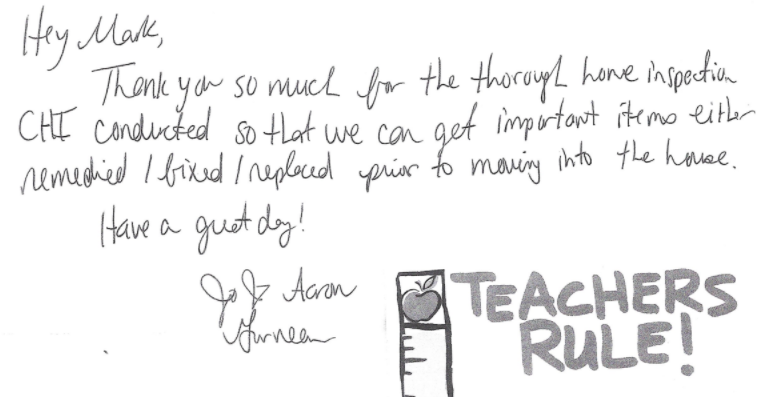 Hey Mark,
Thank you so much for the thorough home inspection
CHI conducted so that we can get important items either
remedied / fixed / replaced prior to moving into the house.
Have a great day!
Aaron
TEACHERS
RULE!